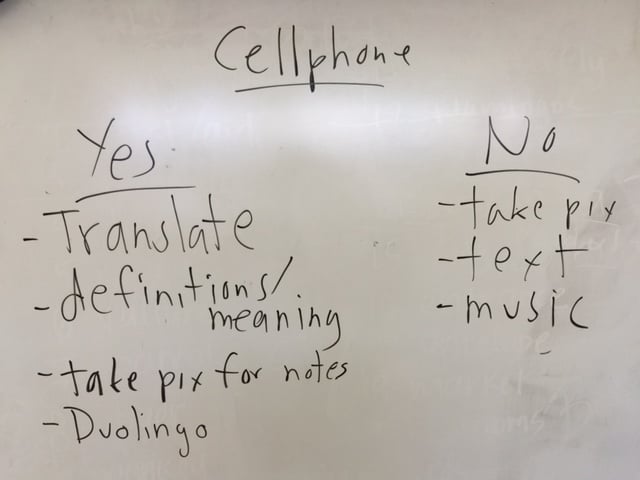 Cellphone
Yes
- Translate
- definitions/
meaning
- take pix for notes
- Duolingo
No
- take pix
- text
- music